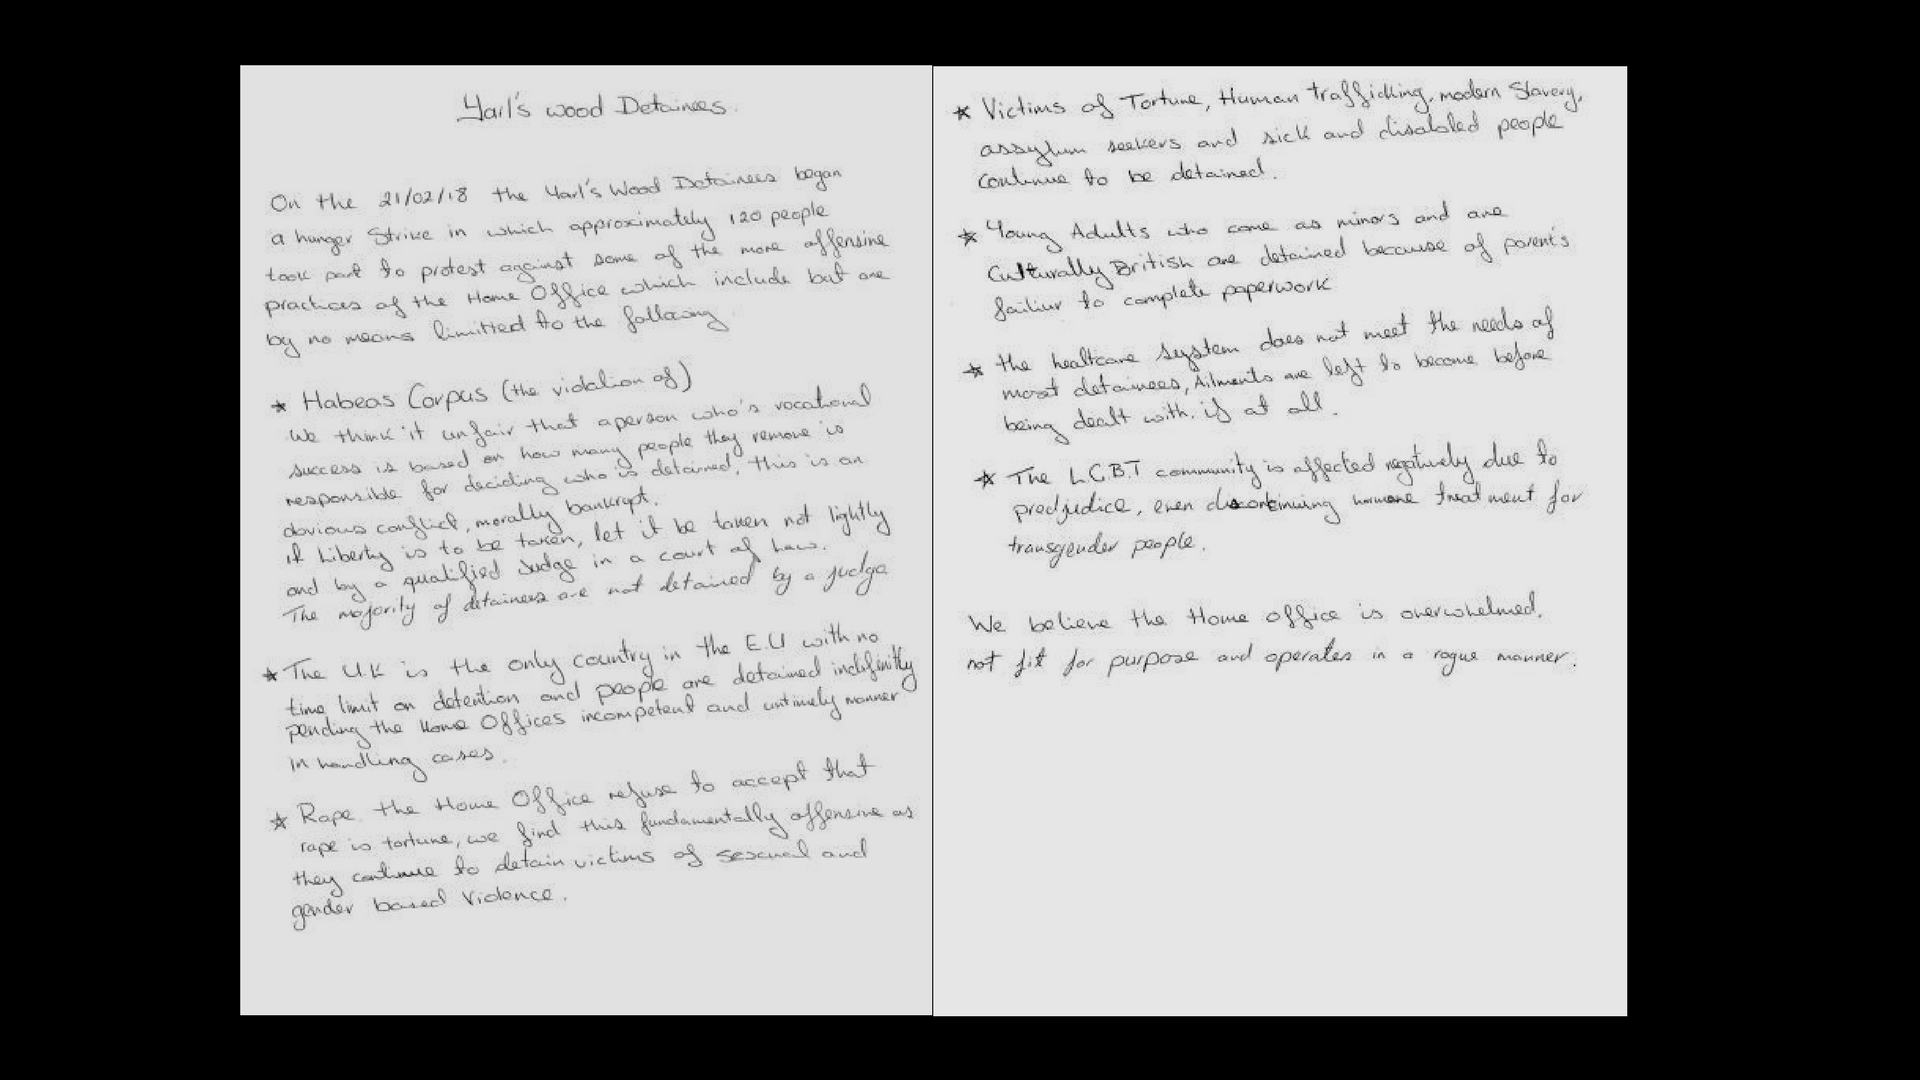 Yarl's wood Detainees.
On the 21/02/18 the Yarl's Wood Detainees began
a hunger Strike in which approximately 120 people
took part to protest against some of the more offensive
practices of the Home Office which include but are
by no means limitted to the following
* Habeas Corpus (the violation of)
We think it unfair that a person who's vocational
success is based on how many people they remove is
responsible for deciding who is detained, this is an
obvious conflict, morally bankrupt.
if Liberty is to be taken, let it be taken not lightly
and by a qualified Judge in a court of Law.
The majority of detainees are not detained by a judge
* The U.K is the only country in the E.U with no
time limit on detention and people are detained indefinitly
pending the Home Offices incompetent and untimely manner
in handling cases.
* Rape. the Home Office refuse to accept that
rape is torture, we find this fundamentally offensive as
they continue to detain victims of sexual and
gender based Violence.
* Victims of Torture, Human trafficking, modern Slavery,
assylum seekers and sick and disabled people
continue to be detained.
* Young Adults who come as minors and are
Culturally British are detained because of parent's
failiur to complete paperwork
* the healtcare system does not meet the needs of
most detainees, Ailments are left to become before
being dealt with. if at all.
* The L.G.B.T community is affected negatively due to
predjudice, even discontinuing hormone treatment for
transgender people.
We believe the Home office is overwhelmed.
not fit for purpose and operates in a rogue manner.